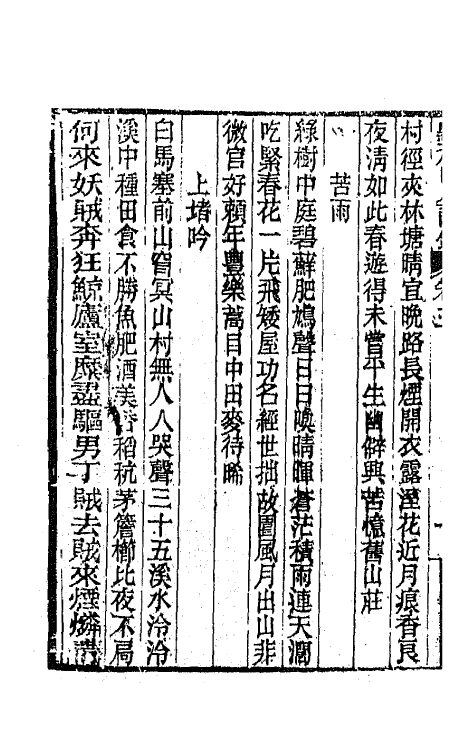 村徑夾林塘晴宜晚路長煙開衣露溼花近月痕香良
夜淸如此春遊得未嘗平生幽僻興苦憶舊山莊
苦雨
綠樹中庭碧蘚肥鳩聲日日喚晴暉蒼茫積雨連天濶
吃緊春花一片飛矮屋功名經世拙故園風月出山非
微官好賴年豐樂蒿目中田麥待晞
上堵吟
白馬塞前山窅冥山村無人人哭聲三十五溪水泠泠
溪中種田食不勝魚肥酒美 稻秔茅簷櫛比夜不扃
何來妖賊奔狂鯨廬室糜盡驅男丁賊去賊來煙燐靑